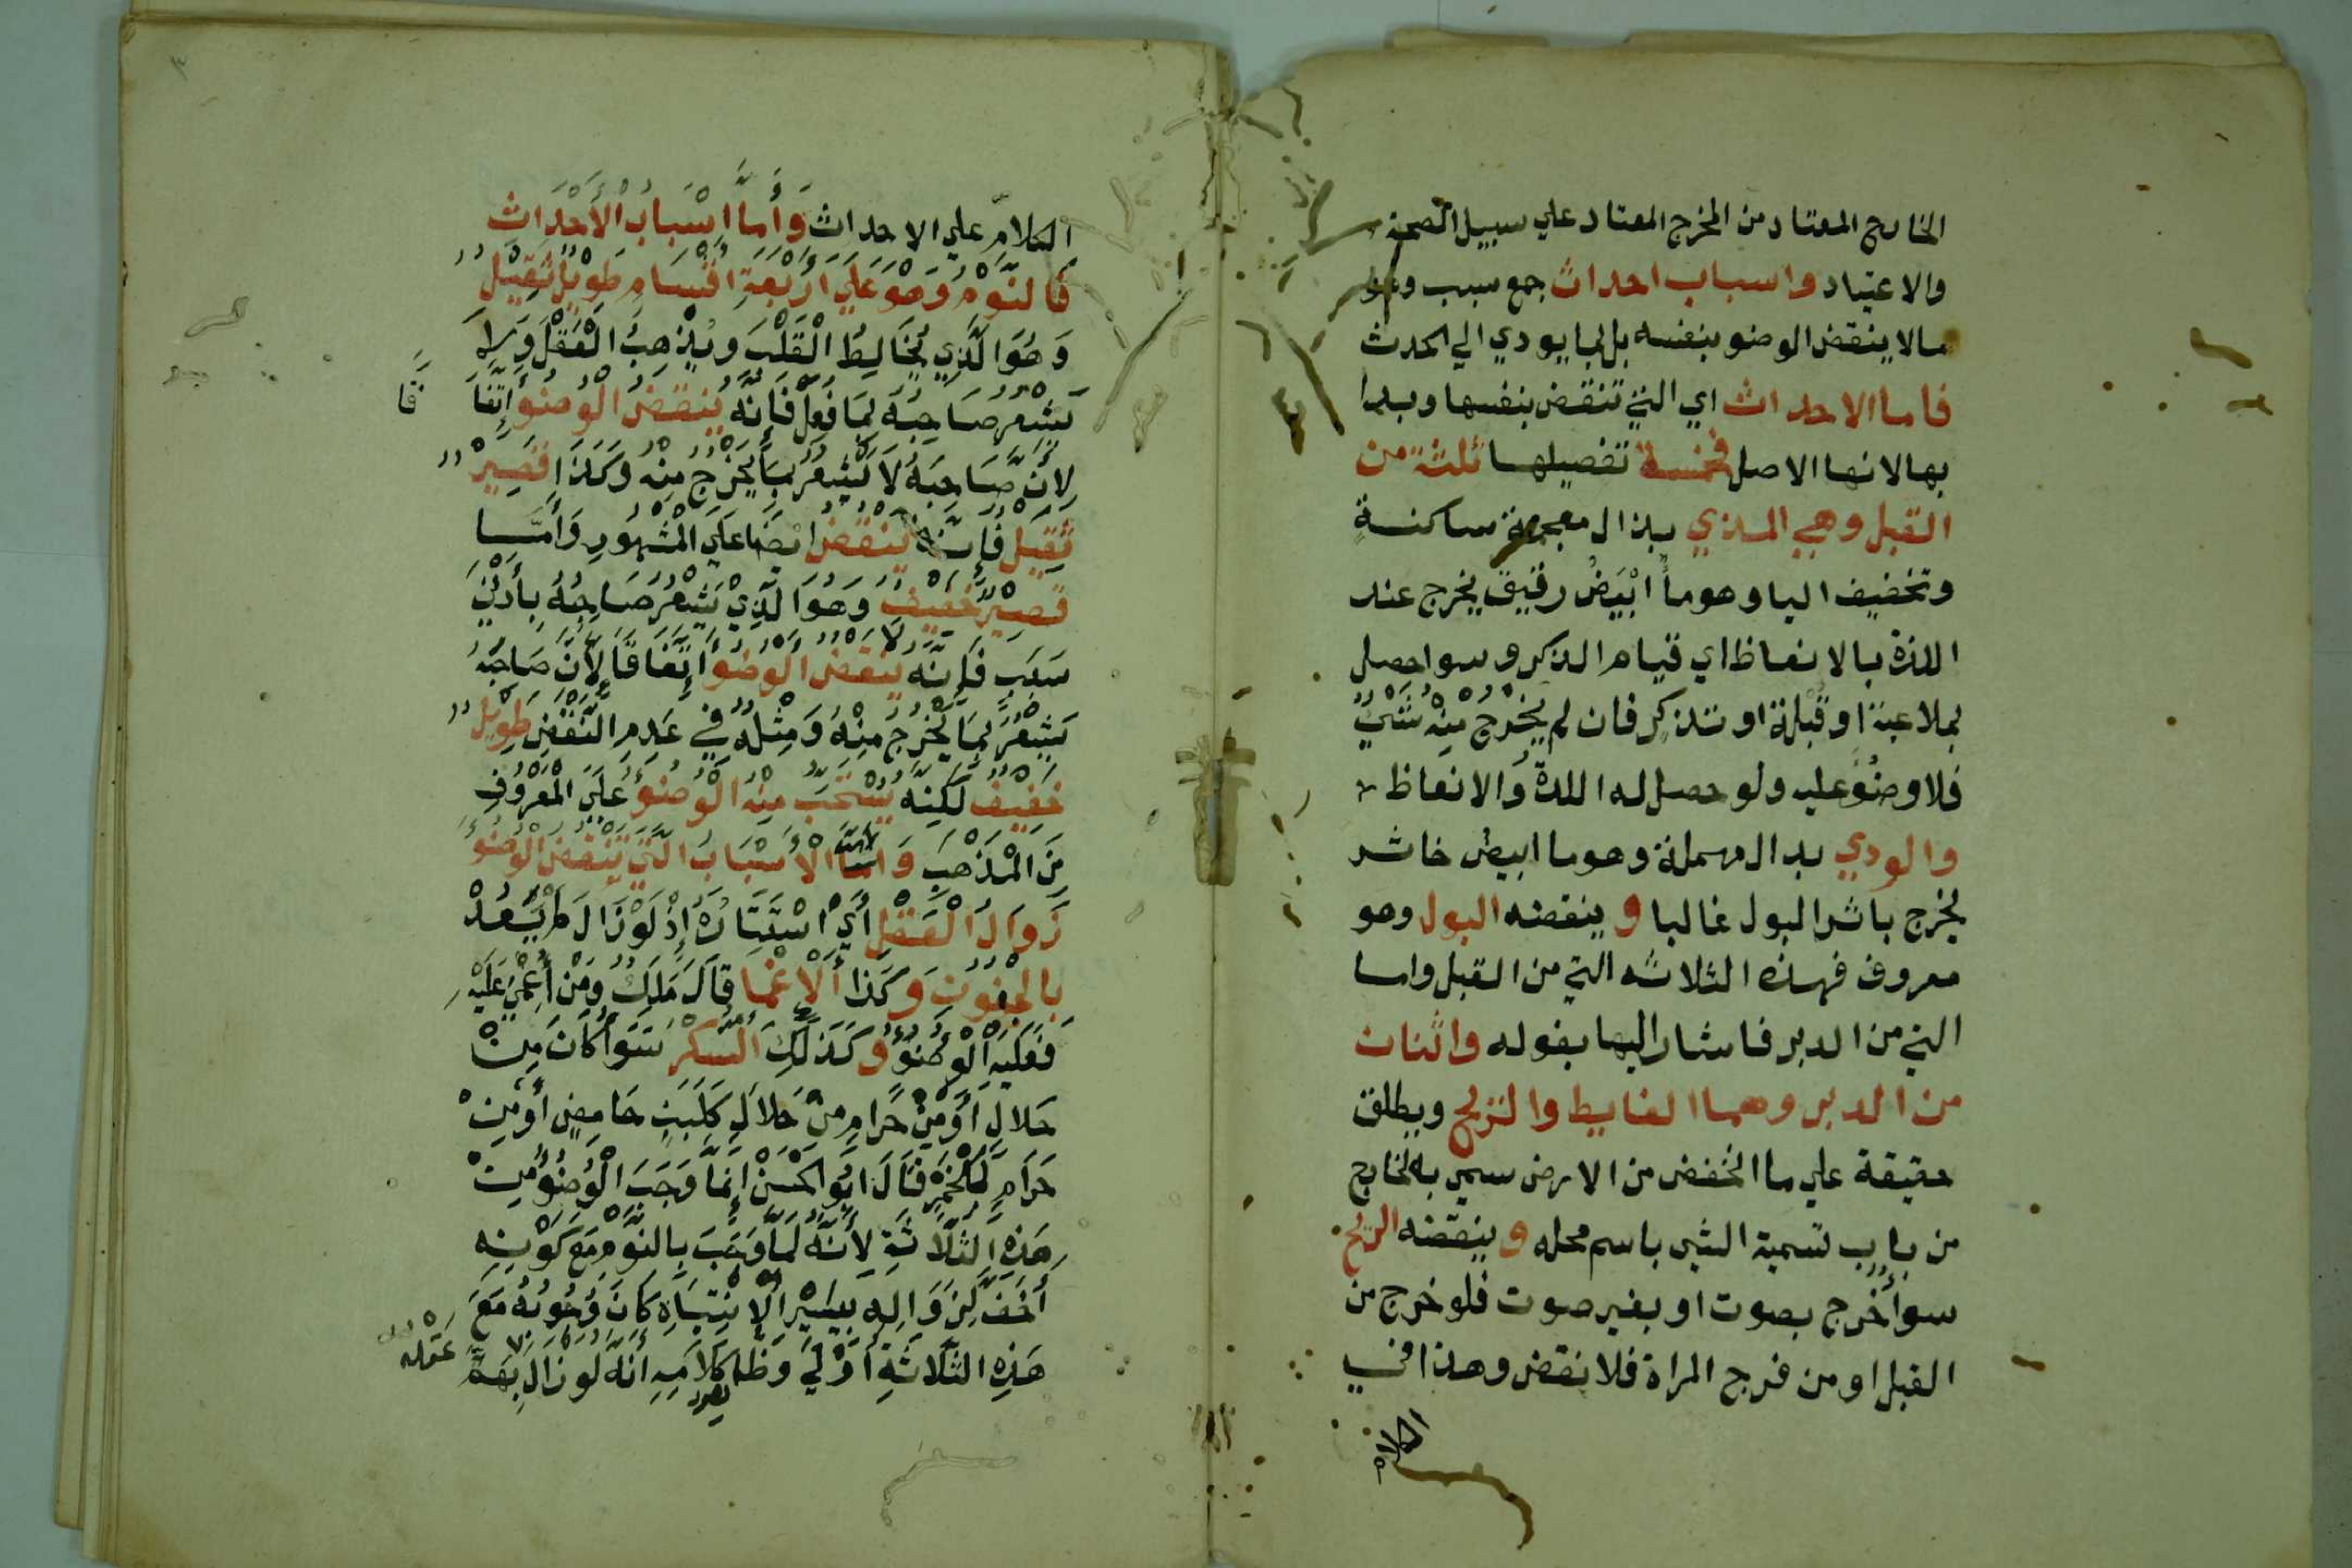 الخارج المعتاد من المخرج المعتاد علي سبيل الصحة
والاعتياد واسباب احداث جمع سبب وهو
مالا ينقض الوضو بنفسه بل بما يودي الي الحدث
فاما الاحداث اي التي تنقض بنفسها وبدا
بها لانها الاصل فخمسة تفصيلها ثلثة من
القبل وهي المذي بذال معجمة ساكنة
وتخفيف اليا وهو ماً ابْيَضُ رقيق يخرج عند
اللذة بالانعاظ اي قيام الذكر وسوا حصل
بملاعبة او قُبْلة او تذكرٍ فان لم يَخْرُجْ مِنْهُ شَيْءٌ
فلا وضُوَ عليه ولو حصل له اللذة والانعاظ
والودي بدال مهملة وهو ما ابيض خاثر
يخرج باثر البول غالبا و ينقضه البول وهو
معروف فهذه الثلاثه التي من القبل واما
التي من الدبر فاشار اليها بقوله واثنان
من الدبر وهما الغايط والريح ويطلق
حقيقة علي ما انخفض من الارض سمي به الخارج
من باب تسمية الشي باسم محله و ينقضه الريح
سوا أخرج بصوت او بغير صوت فلو خرج من
القبل او من فرج المراة فلا نقض وهذا في
الكلام
٣
الكلامّ علي الاحداث وَأَما اسْبَابُ الأَحْدَاث
فَالنَّوْمُ وَهُوَ عَلَي أَرْبَعَةِ اقْسَامٍ طَوِيْلٌ ثَقِيْلٌ
وَهُوَ الَّذِي يُخَالِطُ الْقَلْبَ وَيُذْهِبُ الْعَقْلَ وَلاَ
يَشْعُرُ صَاحِبُهُ بِمَا فَعَلَ فَإِنَّهُ يَنْقُضُ الْوُضُوَ إِتِّفَا قًا
لِأَنَّ صَاحِبَهُ لاَ يَشْعُرُ بِمَا يَخْرُجُ مِنْهُ وَكَذَا قَصِيْرٌ
ثَقِيْلٌ فَإِنَّهُ يَنْقُضُ ايْضًا عَلَي الْمَشْهُورِ وَأَمَّا
قَصِيْرٌ خَفِيْفٌ وَهُوَ الَّذِيْ يَشْعُرُ صَاحِبُهُ بِأَدْنَي
سَبَبٍ فَإِنَّه لاَ يَنْقُضُ الْوُضُوَ إِتِّفَاقًا لِأَنَّ صَاحِبَهُ
يَشْعُرُ بِمَا يَخْرُجُ مِنْهُ وَمِثْلُهُ فِي عَدَمِ النَّقْضِ طَوِيْلٌ
خَفِيْفٌ لَكِنَّهُ يُسْتَحَبُّ مِنْهُ الْوُضُوءُ عَلَي الْمَعْرُوْفِ
مِنَ الْمَذْهَبِ وَاما الْأَسْبَابُ الَّتِي تَنْقُضُ الْوُضُوءَ
زَوَالُ الْعَقْلِ أَيْ اسْتِتَارُهُ إِذْ لَوْ زَالَ لَمْ يَعُدْ
بِالْجُنُوْنِ وَ كَذَا أَلْاِغْمَا قَالَ مَالِكُ وَمَنْ أُغْمِيَ عَلَيْهِ
فَعَلَيْهِ الْوُضُوُ وَكَذَلِكَ السُّكْرُ سَوَا كَانَ مِنْ
حَلاَلٍ أَوْمِنْ حَرَامٍ مِنْ حَلاَلٍ كَلَبَنٍ حَامِضٍ أَوْمِنْ
حَرَامٍ كَالْخَمْرِ قَالَ ابُو الْحَسَنْ إِنَّمَا وَجَبَ الْوُضُوُ مِنْ
هَذِهِ الثَّلاَثَةِ لِأَنَّهُ لَمَّا وَجَبَ بِالنَّوْمِ مَعَ كَوْنِهِ
أَخَفَّ لِزَوَالِهِ بِيَسِيْرِ الْاِنْتِبَاهِ كَانَ وُجُوبُهُ مَعَ
هَذِهِ الثَّلاَثَةِ أَوْلَي وَظَاهر كَلاَمِهِ أَنَّهُ لَوْ زَالَ بِهَمٍّ عَقْلُهُ